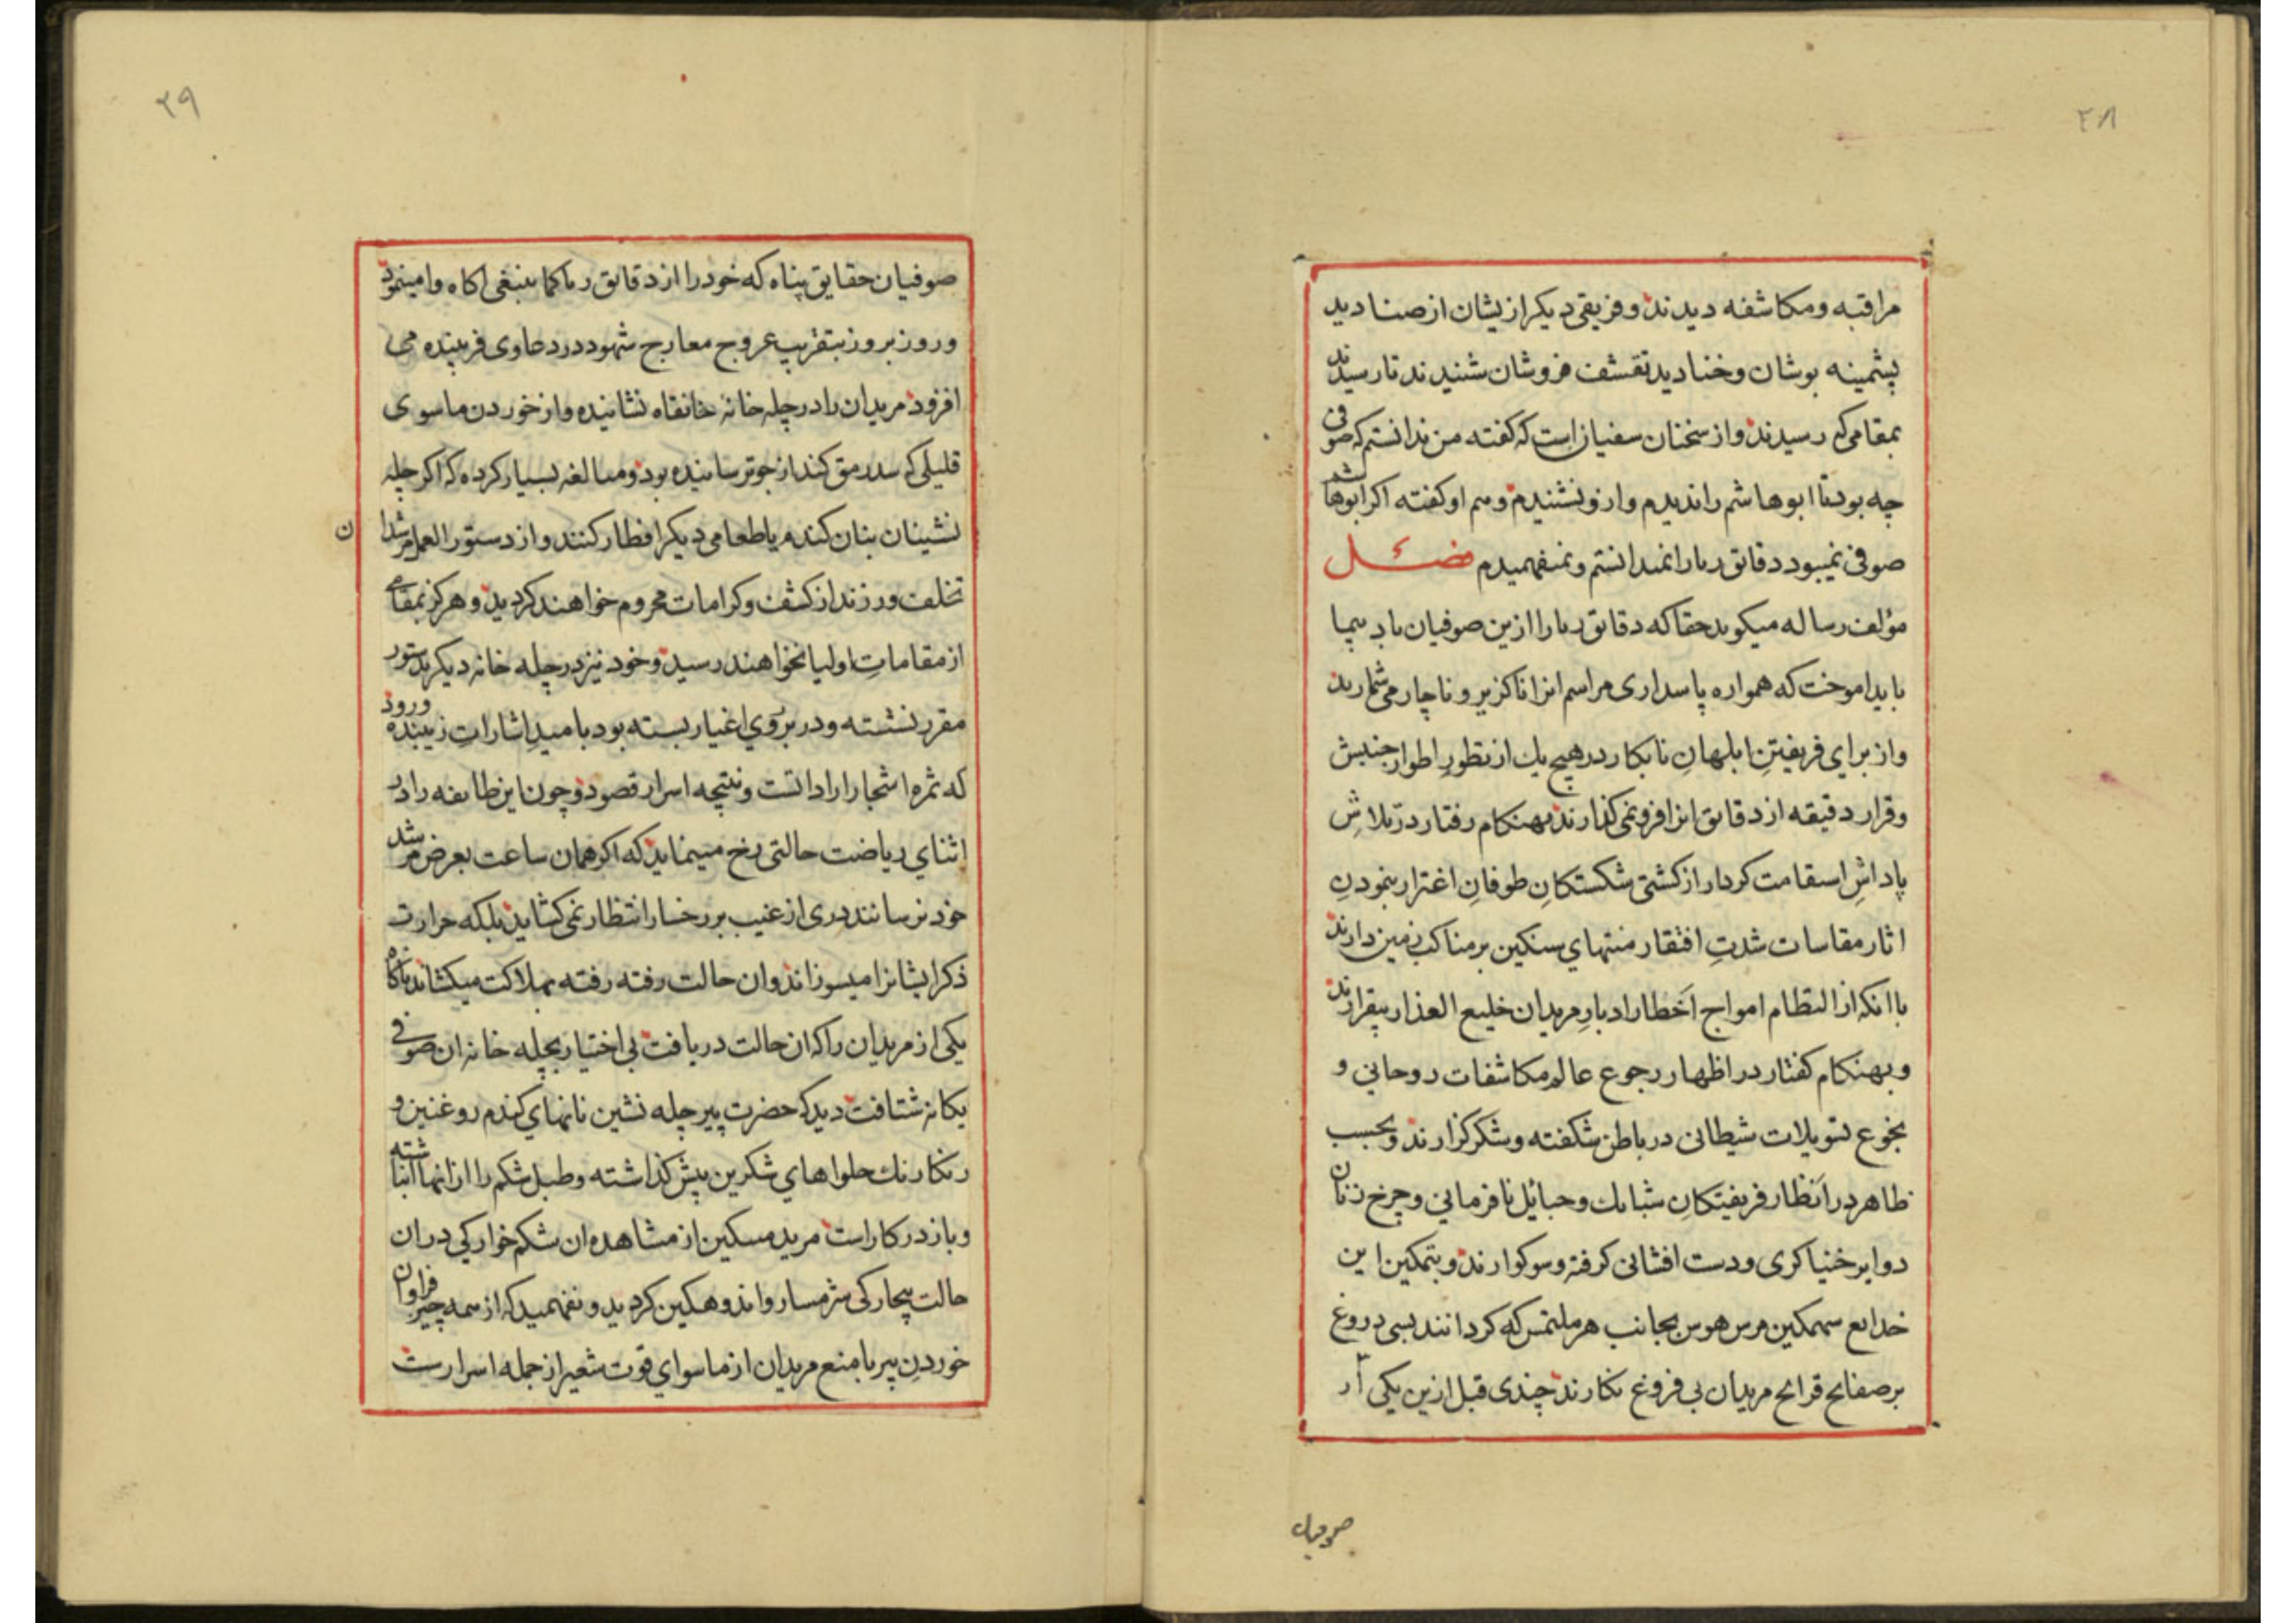 ۲۸
مراقبه ومکاشفه دیدند وفریقی دیکر ازیشان از صنادید
پشمینه پوشان وخنادید تقشف فروشان شنیدند تا رسیدند
بمقامی که رسیدند واز سخنان سفیان است که کفته من ندانستم که صوفی
چه بود تا ابوهاشم را ندیدم وازو نشنیدم وهم او کفته اکر ابوهاشم
صوفی نمیبود دقائق ریا را نمیدانستم ونمیفهمیدم
مؤلف رساله میکوید حقا که دقائق ریا را ازین صوفیان باد پیما
باید اموخت که همواره پاسداری مراسم انرا ناکزیر و ناچار می شمارند
واز برای فریفتنِ ابلهانِ نابکار در هیچ یك از تطورِ اطوار جنبش
وقرار دقیقه از دقائق انرا فرو نمی کذارند بهنکام رفتار در تلاشِ
پاداشِ استقامت کردار از کشتی شکستکانِ طوفانِ اغترار بنمودنِ
اثار مقاسات شدتِ افتقار منتهای سنکین بر مناکب زمین دارند
با انکه از التطام امواج اَخطار ادبارِ مریدان خلیع العذار بیقرارند
و بهنکام کفتار در اظهار رجوع عالم مکاشفات روحانی و
بخوع تسویلات شیطانی در باطن شکفته وشکرکزارند وبحسب
ظاهر در اَنظار فریفتکانِ شبابك وحبایل نافرمانی وچرخ زنان
دوایر خنیاکری ودست افشانی کرفته وسوکوارند وبتمکین این
خدایع سهمکین مرس هوس بجانب هر ملتمس که کردانند بسی دروغ
بر صفایح قرایح مریدان بی فروغ نکارند چندی قبل ازین یکی از
صوفیان
۲۹
صوفیان حقایق پناه که خود را از دقائق ریا کما ینبغی اکاه وامینمود
وروز بروز بتقریب عروج معارج شهود در دعاوی فریبنده می
افزود مریدان را در چله خانهٔ خانقاه نشانیده واز خوردن ماسوی
قلیلی که سد رمق کند از جو ترسانیده بود ومبالغه بسیار کرده که اکر چله
نشینان بنان کندم یا طعامی دیکر افطار کنند واز دستور العمل مرشدان
تخلف ورزند از کشف وکرامات محروم خواهند کردید وهرکز بمقامی
از مقاماتِ اولیا نخواهند رسید وخود نیز در چله خانه دیکر بدستور
مقرر نشسته ودر بروي اغیار بسته بود بامیدِ اشاراتِ زیبنده ورود
که ثمره اشجار ارادتست ونتیجه اسرار قصود وچون این طایفه را در
اثناي ریاضت حالتی رخ مینماید که اکر همان ساعت بعرض مرشد
خود نرسانند دری از غیب بر رخسار انتظار نمی کشاید بلکه حرارت
ذکر ایشانرا میسوزاند وان حالت رفته رفته بهلاکت میکشاند ناکاه
یکی از مریدان را که ان حالت دریافت بی اختیار بچله خانه ان صوفی
یکانه شتافت دید که حضرت پیر چله نشین نانهاي کندم روغنین و
رنکارنك حلواهاي شکرین پیش کذاشته وطبل شکم را از انها انباشته
وباز در کار است مرید مسکین از مشاهده ان شکم خوارکی دران
حالت بیچارکی شرمسار واندوهکین کردید ونفهمید که از همه چیز فراوان
خوردنِ پیر با منع مریدان از ماسوای قوت شعیر از جمله اسرارست
ن